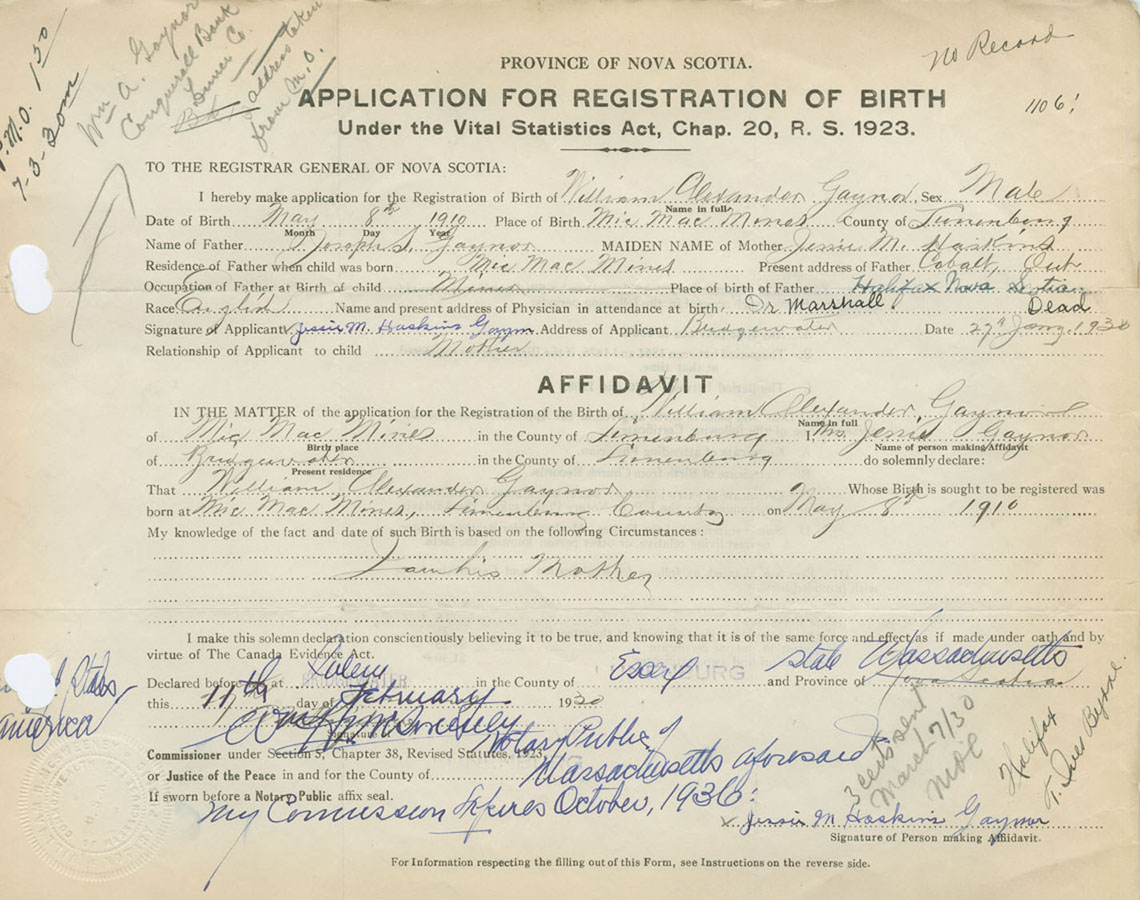 P.M.O. 1 50
7-3-30
Wm A. Gaynor
Conquerall Bank
Lunen Co.
address taken
from M.O.
No Record
PROVINCE OF NOVA SCOTIA.
APPLICATION FOR REGISTRATION OF BIRTH
1106
Under the Vital Statistics Act, Chap. 20, R. S. 1923.
TO THE REGISTRAR GENERAL OF NOVA SCOTIA:
I hereby make application for the Registration of Birth of William Alexander Gaynor Sex Male
Name in full
Date of Birth May 8th 1910 Place of Birth Mic Mac Mines County of Lunenburg
Month Day Year
Name of Father Joseph Gaynor MAIDEN NAME of Mother Jessie M. Haskins
Residence of Father when child was born Mic Mac Mines Present address of Father Cobalt, Ont
Occupation of Father at Birth of child Miner Place of birth of Father Halifax Nova Scotia
Race English Name and present address of Physician in attendance at birth Dr Marshall Dead
Signature of Applicant Jessie M. Haskins Gaynor Address of Applicant Bridgewater Date 27th Jany 1930
Relationship of Applicant to child Mother
AFFIDAVIT
IN THE MATTER of the application for the Registration of the Birth of William Alexander Gaynor
Name in full
of Mic Mac Mines in the County of Lunenburg I Mrs Jessie Gaynor
Birth place Name of person making Affidavit
of Bridgewater in the County of Lunenburg do solemnly declare:
Present residence
That William Alexander Gaynor Whose Birth is sought to be registered was
born at Mic Mac Mines, Lunenburg County on May 8th 1910
My knowledge of the fact and date of such Birth is based on the following Circumstances:
I am his Mother
I make this solemn declaration conscientiously believing it to be true, and knowing that it is of the same force and effect as if made under oath and by
virtue of The Canada Evidence Act.
Declared before me at Salem in the County of Essex and Province of Nova Scotia state Massachusetts
States
America
this 11th day of February 1930
Signature
Commissioner under Section 5, Chapter 38, Revised Statutes, 1923, Notary Public of
or Justice of the Peace in and for the County of Massachusetts aforesaid
If sworn before a Notary Public affix seal.
My Commission Expires October, 1936.
3 cents sent
March 7/30
MOC
Halifax
Jessie M Haskins Gaynor
Signature of Person making Affidavit.
For Information respecting the filling out of this Form, see Instructions on the reverse side.